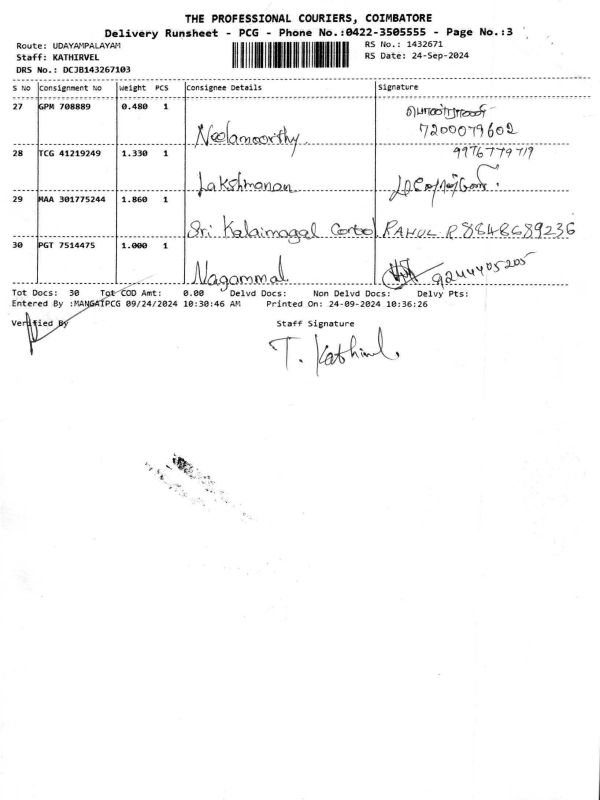 THE PROFESSIONAL COURIERS, COIMBATORE
Delivery Runsheet - PCG - Phone No.:0422-3505555 - Page No.:3
Route: UDAYAMPALAYAM
RS No.: 1432671
Staff: KATHIRVEL
RS Date: 24-Sep-2024
DRS No.: DCJB143267103
S No Consignment No Weight PCS Consignee Details Signature
27 GPM 708889 0.480 1
Neelamoorthy 7200079602
28 TCG 41219249 1.330 1 9976779719
Lakshmanan
29 MAA 301775244 1.860 1
Sri Kalaimagal RAHUL R 8848689236
30 PGT 7514475 1.000 1
Nagammal 9244405205
Tot Docs: 30 Tot COD Amt: 0.00 Delvd Docs: Non Delvd Docs: Delvy Pts:
Entered By :MANGAIPCG 09/24/2024 10:30:46 AM Printed On: 24-09-2024 10:36:26
Verified By Staff Signature
T. Kathirvel.